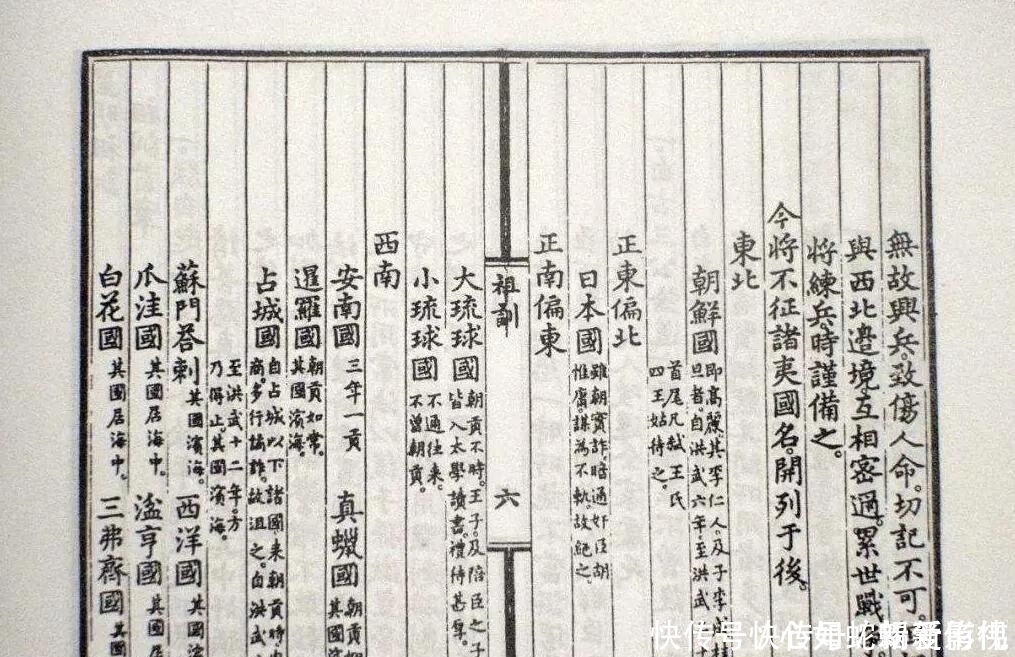 無故興兵。致傷人命。切記不可
與西北邉境互相密邇。累世戰
將練兵。時謹備之。
今將不征諸夷國名。開列于後。
東北
朝鮮國
即高麗。其李仁人。及子李
旦者。自洪武六年。至洪武十
首尾凡弒王氏
四王。姑待之。
正東偏北
日本國
雖朝實詐暗通奸臣胡
惟庸。謀為不軌。故絕之
正南偏東
大琉球國
朝貢不時。王子及陪臣之子
皆入太學讀書。禮待甚厚。
小琉球國
不通往来。
不曾朝貢。
祖訓
六
西南
安南國 三年一貢
真蠟國
朝貢如
其國
暹羅國
朝貢如常。
其國濱海。
占城國
自占城以下諸國。来朝貢時。
商。多行譎詐。故沮之。自洪武
至洪武十二年。方
乃得止其國濱海。
蘇門荅剌 其國濱海。
西洋國 其國濱
爪洼國 其國居海中。
湓亨國 其國
白花國 其國居海中。
三弗齊國 其
快传号